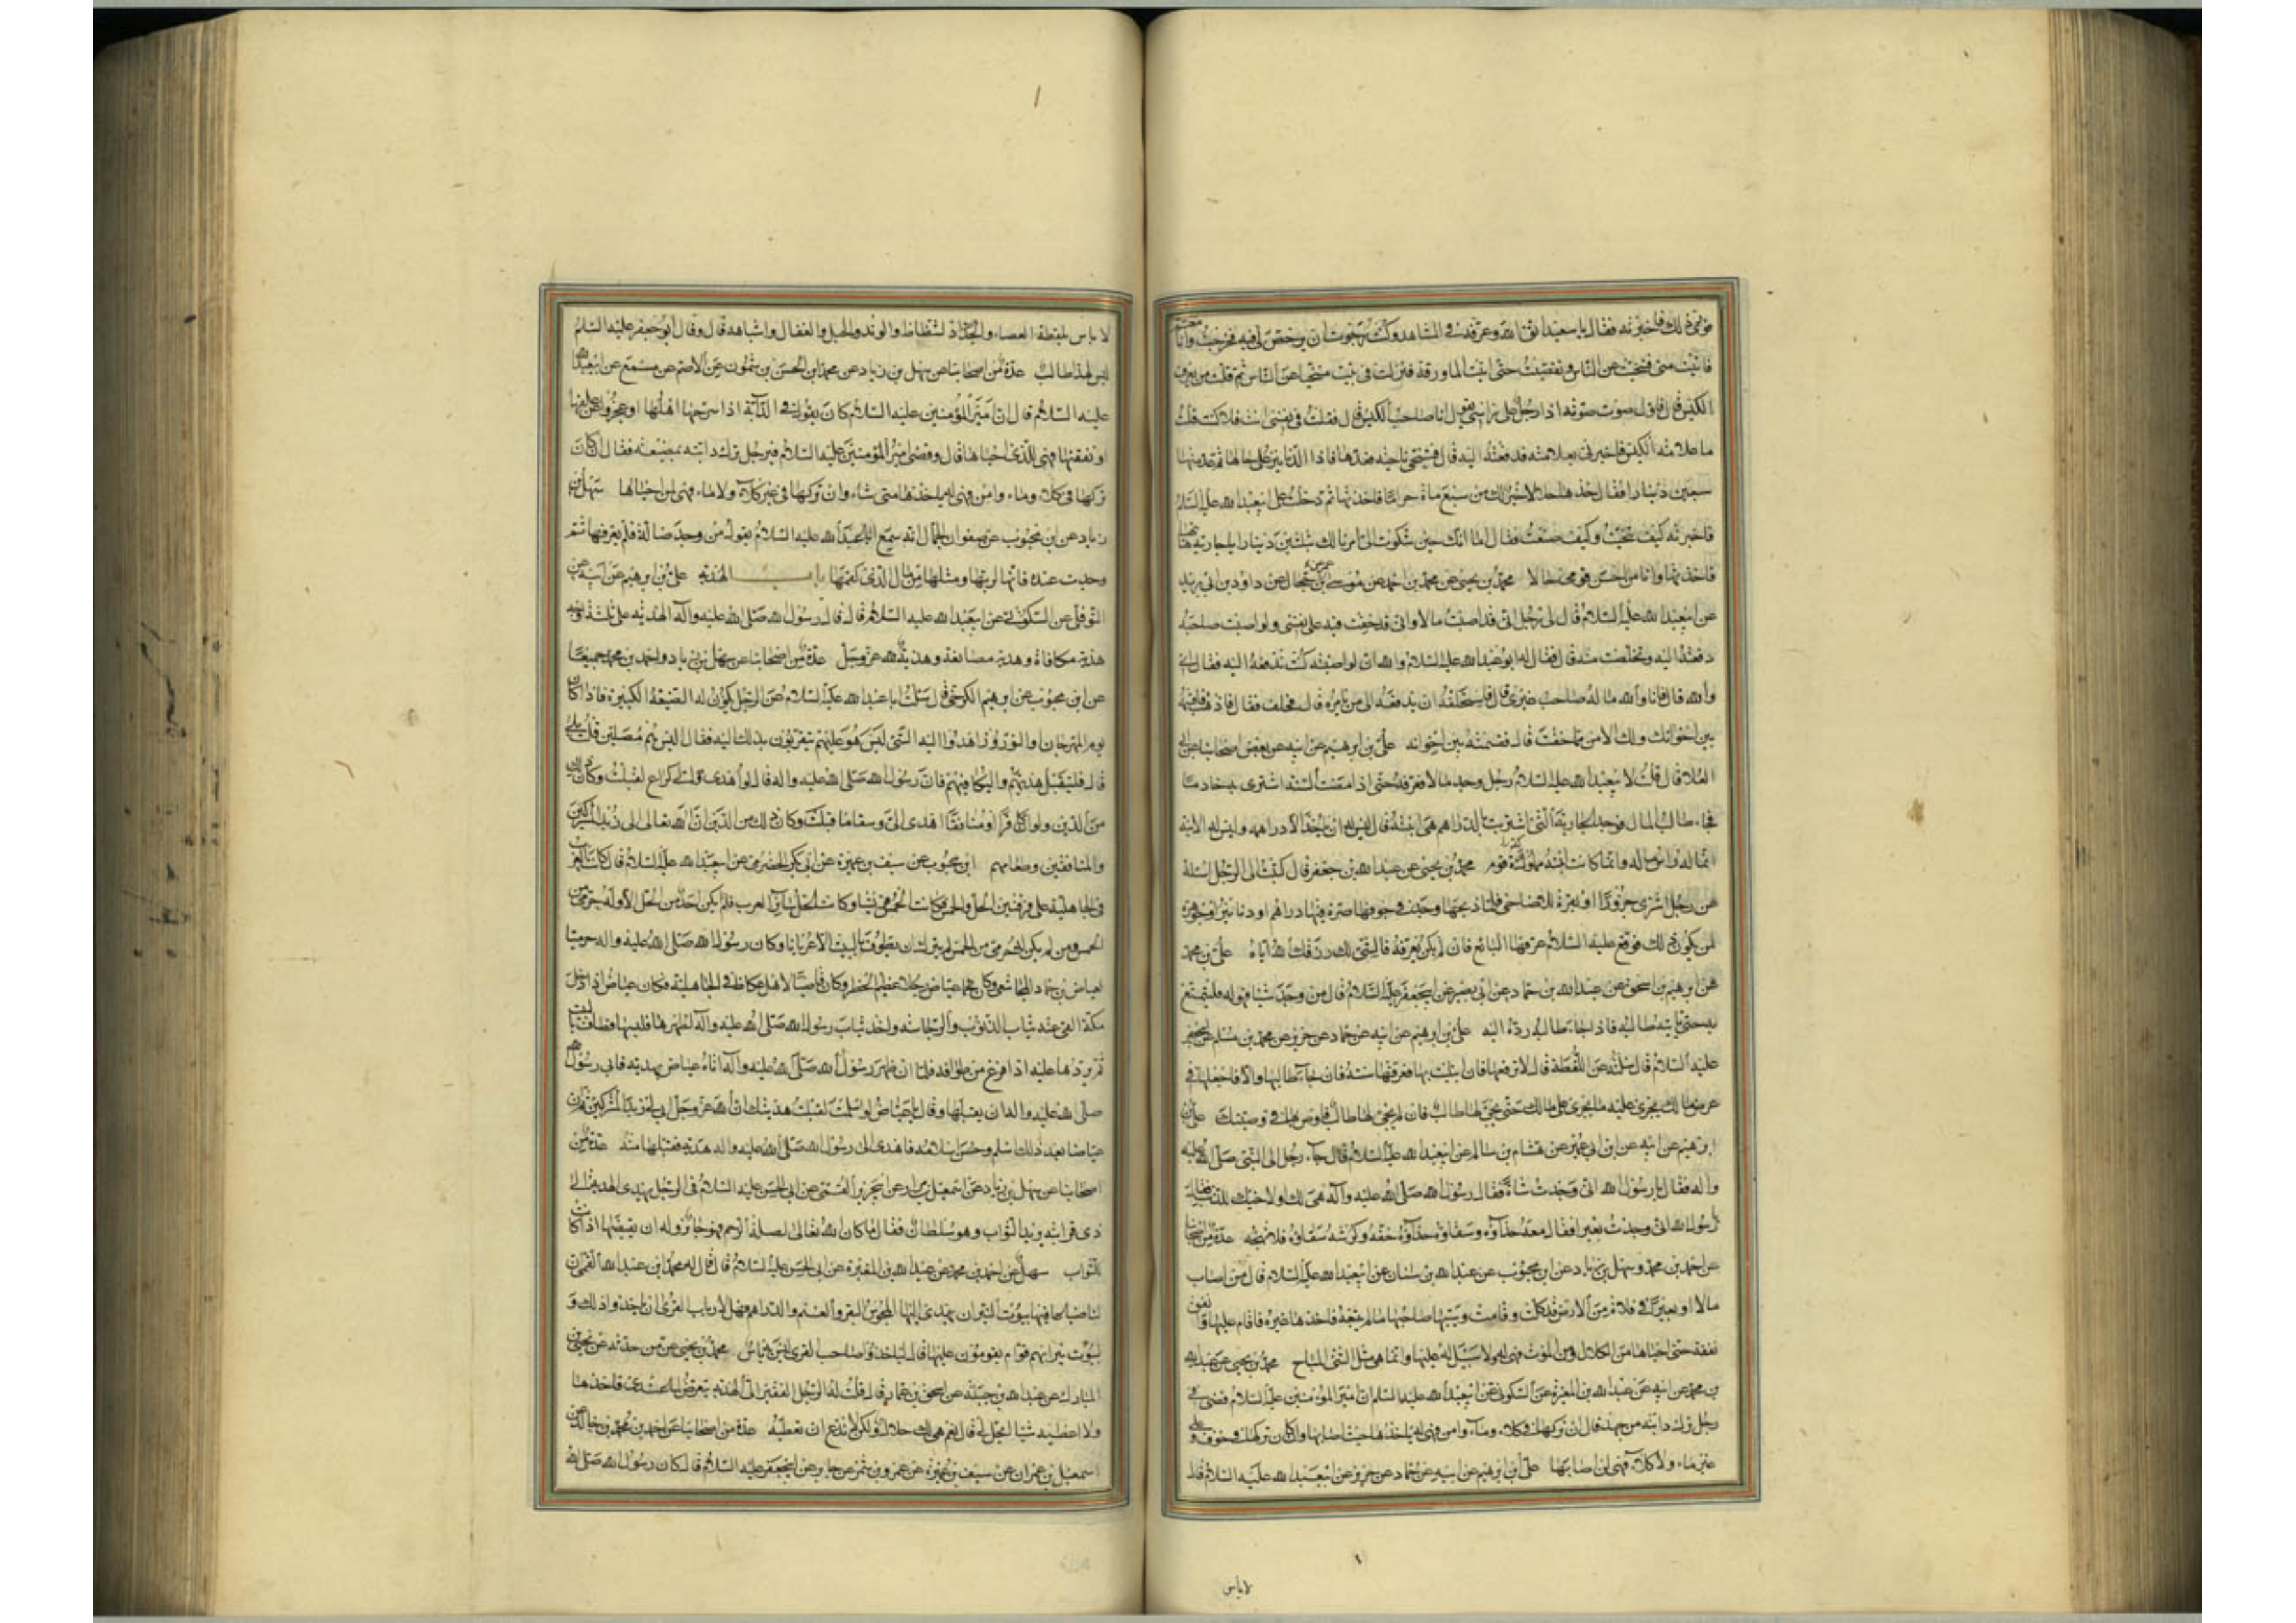 فاخبرته فقال يا سعيد اتق الله وعرفه في المشاهد وكنت رجوت ان يرخص لي فيه فخرجت وانا مغتم
فاتيت منى فتنحيت عن الناس حتى اتيت الماورقة فنزلت في بيت متنحيا عن الناس ثم قلت من يعرف
الكيس قال فاول صوت صوته اذا رجل على راسي يقول انا صاحب الكيس قال فقلت في نفسي انت فلا كنت قلت
ما علامة الكيس فاخبرني بعلامته فدفعته اليه قال فتنحى ناحية فعدها فاذا الدنانير على حالها ثم عد منها
سبعين دينارا فقال خذها حلالا خير لك من سبع مائة حراما فاخذتها ثم دخلت على ابي عبد الله عليه السلام
فاخبرته كيف تنحيت وكيف صنعت فقال اما انك حين شكوت الي امرنا لك بثلثين دينارا يا جارية هاتيها
فاخذتها وانا من احسن قومي حالا محمد بن يحيى عن محمد بن احمد عن موسى بن عمر عن الحجال عن داود بن ابي يزيد
عن ابي عبد الله عليه السلام قال قال رجل اني قد اصبت مالا واني قد خفت فيه على نفسي ولو اصبت صاحبه
دفعته اليه وتخلصت منه قال فقال له ابو عبد الله عليه السلام والله ان لو اصبته كنت تدفعه اليه فقال اي
والله قال فانا والله ما له صاحب غيري قال فاستحلفه ان يدفعه الى من يامره قال فحلف فقال فاذهب فاقسمه
بين اخوانك ولك الامن مما خفت قال فقسمته بين اخوانه علي بن ابرهيم عن ابيه عن بعض اصحابنا عن ابي
العلا قال قلت لابي عبد الله عليه السلام رجل وجد مالا فعرفه حتى اذا مضت السنة اشترى به خادما
فجاء طالب المال فوجد الجارية التي اشتريت بالدراهم هي ابنته قال ليس له ان ياخذ الا دراهمه وليس له الابنة
انما له راس ماله وانما كانت ابنته مملوكة قوم محمد بن يحيى عن عبد الله بن جعفر قال كتبت الى الرجل اسئله
عن رجل اشترى جزورا او بقرة للاضاحي فلما ذبحها وجد في جوفها صرة فيها دراهم او دنانير او جوهرة
لمن يكون ذلك فوقع عليه السلام عرفها البائع فان لم يكن يعرفها فالشيء لك رزقك الله اياه علي بن محمد
عن ابرهيم بن اسحق عن عبد الله بن حماد عن ابي بصير عن ابي جعفر عليه السلام قال من وجد شيئا فهو له فليتمتع
به حتى ياتيه طالبه فاذا جاء طالبه رده اليه علي بن ابرهيم عن ابيه عن حماد عن حريز عن محمد بن مسلم عن ابي جعفر
عليه السلام قال سئلته عن اللقطة قال لا ترفعها فان ابتليت بها فعرفها سنة فان جاء طالبها والا فاجعلها في
عرض مالك يجري عليه ما يجري على مالك حتى يجيء لها طالب فان لم يجئ لها طالب فاوص بها في وصيتك علي بن
ابرهيم عن ابيه عن ابن ابي عمير عن هشام بن سالم عن ابي عبد الله عليه السلام قال جاء رجل الى النبي صلى الله عليه
واله فقال يا رسول الله اني وجدت شاة فقال رسول الله صلى الله عليه وآله هي لك او لاخيك او للذئب فقال
يا رسول الله اني وجدت بعيرا فقال معه حذاؤه وسقاؤه حذاؤه خفه وكرشه سقاؤه فلا تهجه عدة من اصحابنا
عن احمد بن محمد وسهل بن زياد عن ابن محبوب عن عبد الله بن سنان عن ابي عبد الله عليه السلام قال من اصاب
مالا او بعيرا في فلاة من الارض قد كلت وقامت وسيبها صاحبها ما لم يتبعه فاخذها غيره فاقام عليها وانفق
نفقة حتى احياها من الكلال ومن الموت فهي له ولا سبيل له عليها وانما هي مثل الشيء المباح محمد بن يحيى عن عبد الله
بن محمد عن ابيه عن عبد الله بن المغيرة عن السكوني عن ابي عبد الله عليه السلام ان امير المؤمنين عليه السلام قضى في
رجل ترك دابته من جهد قال ان تركها في كلاء وماء وامن فهي له ياخذها حيث اصابها وان كان تركها في خوف وعلى
غير ماء ولا كلاء فهي لمن اصابها علي بن ابرهيم عن ابيه عن حماد عن حريز عن ابي عبد الله عليه السلام قال
لا باس
لا باس بلقطة العصا والشظاظ والوتد والحبل والعقال واشباهه قال وقال ابو جعفر عليه السلام
ليس لهذا طالب عدة من اصحابنا عن سهل بن زياد عن محمد بن الحسن بن شمون عن الاصم عن مسمع عن ابي عبد الله
عليه السلام قال ان امير المؤمنين عليه السلام كان يقول في الدابة اذا سرحها اهلها او عجزوا عن علفها
او نفقتها فهي للذي احياها قال وقضى امير المؤمنين عليه السلام في رجل ترك دابته بمضيعة فقال ان كان
تركها في كلاء وماء وامن فهي له ياخذها متى شاء وان تركها في غير كلاء ولا ماء فهي لمن احياها سهل بن
زياد عن ابن محبوب عن صفوان الجمال انه سمع ابا عبد الله عليه السلام يقول من وجد ضالة فلم يعرفها ثم
وجدت عنده فانها لربها ومثلها من مال الذي كتمها باب الهدية علي بن ابرهيم عن ابيه عن
النوفلي عن السكوني عن ابي عبد الله عليه السلام قال قال رسول الله صلى الله عليه وآله الهدية على ثلثة اوجه
هدية مكافاة وهدية مصانعة وهدية لله عز وجل عدة من اصحابنا عن سهل بن زياد واحمد بن محمد جميعا
عن ابن محبوب عن ابرهيم الكرخي قال سئلت ابا عبد الله عليه السلام عن الرجل يكون له الضيعة الكبيرة فاذا كان
يوم المهرجان او النوروز اهدوا اليه الشيء ليس هو عليهم يتقربون بذلك اليه فقال اليس هم مصلين قلت بلى
قال فليقبل هديتهم وليكافهم فان رسول الله صلى الله عليه واله قال لو اهدي الي كراع لقبلت وكان ذلك
من الدين ولو ان كافرا او منافقا اهدى الي وسقا ما قبلت وكان ذلك من الدين ان الله تعالى ابى لي زبد المشركين
والمنافقين وطعامهم ابن محبوب عن سيف بن عميرة عن ابي بكر الحضرمي عن ابي عبد الله عليه السلام قال كانت العرب
في الجاهلية على فرقتين الحل والحمس فكانت الحمس قريشا وكانت الحل سائر العرب فلم يكن احد من الحل الا وله حرمي من
الحمس ومن لم يكن له حرمي من الحمس لم يترك ان يطوف بالبيت الا عريانا وكان رسول الله صلى الله عليه واله حرميا
لعياض بن حماد المجاشعي وكان عياض رجلا عظيم الخطر وكان قاضيا لاهل عكاظ في الجاهلية فكان عياض اذا دخل
مكة القى عنه ثياب الذنوب والرجاسة واخذ ثياب رسول الله صلى الله عليه وآله لطهرها فلبسها وطاف بالبيت
ثم يردها عليه اذا فرغ من طوافه فلما ان ظهر رسول الله صلى الله عليه وآله اتاه عياض بهدية فابى رسول الله
صلى الله عليه واله ان يقبلها وقال يا عياض لو اسلمت لقبلت هديتك ان الله عز وجل ابى لي زبد المشركين ثم ان
عياضا بعد ذلك اسلم وحسن اسلامه فاهدى الى رسول الله صلى الله عليه واله هدية فقبلها منه عدة من
اصحابنا عن سهل بن زياد عن اسمعيل بن مهران عن ابي جرير القمي عن ابي الحسن عليه السلام في الرجل يهدي الهدية الى
ذي قرابته يريد الثواب وهو سلطان فقال ما كان لله تعالى لصلة الرحم فهو جائز وله ان يقبضها اذا كان
للثواب سهل عن احمد بن محمد عن عبد الله بن المغيرة عن ابي الحسن عليه السلام قال قال له محمد بن عبد الله القمي ان
لنا ضياعا فيها بيوت النيران يهدي اليها المجوس البقر والغنم والدراهم فهل لارباب القرى ان ياخذوا ذلك و
لبيوت نيرانهم قوام يقومون عليها قال لياخذه صاحب القرى ليس به باس محمد بن يحيى عمن حدثه عن يحيى بن
المبارك عن عبد الله بن جبلة عن اسحق بن عمار قال قلت له الرجل الفقير الي الهدية يتعرض لما عندي فاخذها
ولا اعطيه شيئا ايحل لي قال نعم هي لك حلال ولكن لا تدع ان تعطيه عدة من اصحابنا عن احمد بن محمد بن خالد عن
اسمعيل بن مهران عن سيف بن عميرة عن عمرو بن شمر عن جابر عن ابي جعفر عليه السلام قال كان رسول الله صلى الله